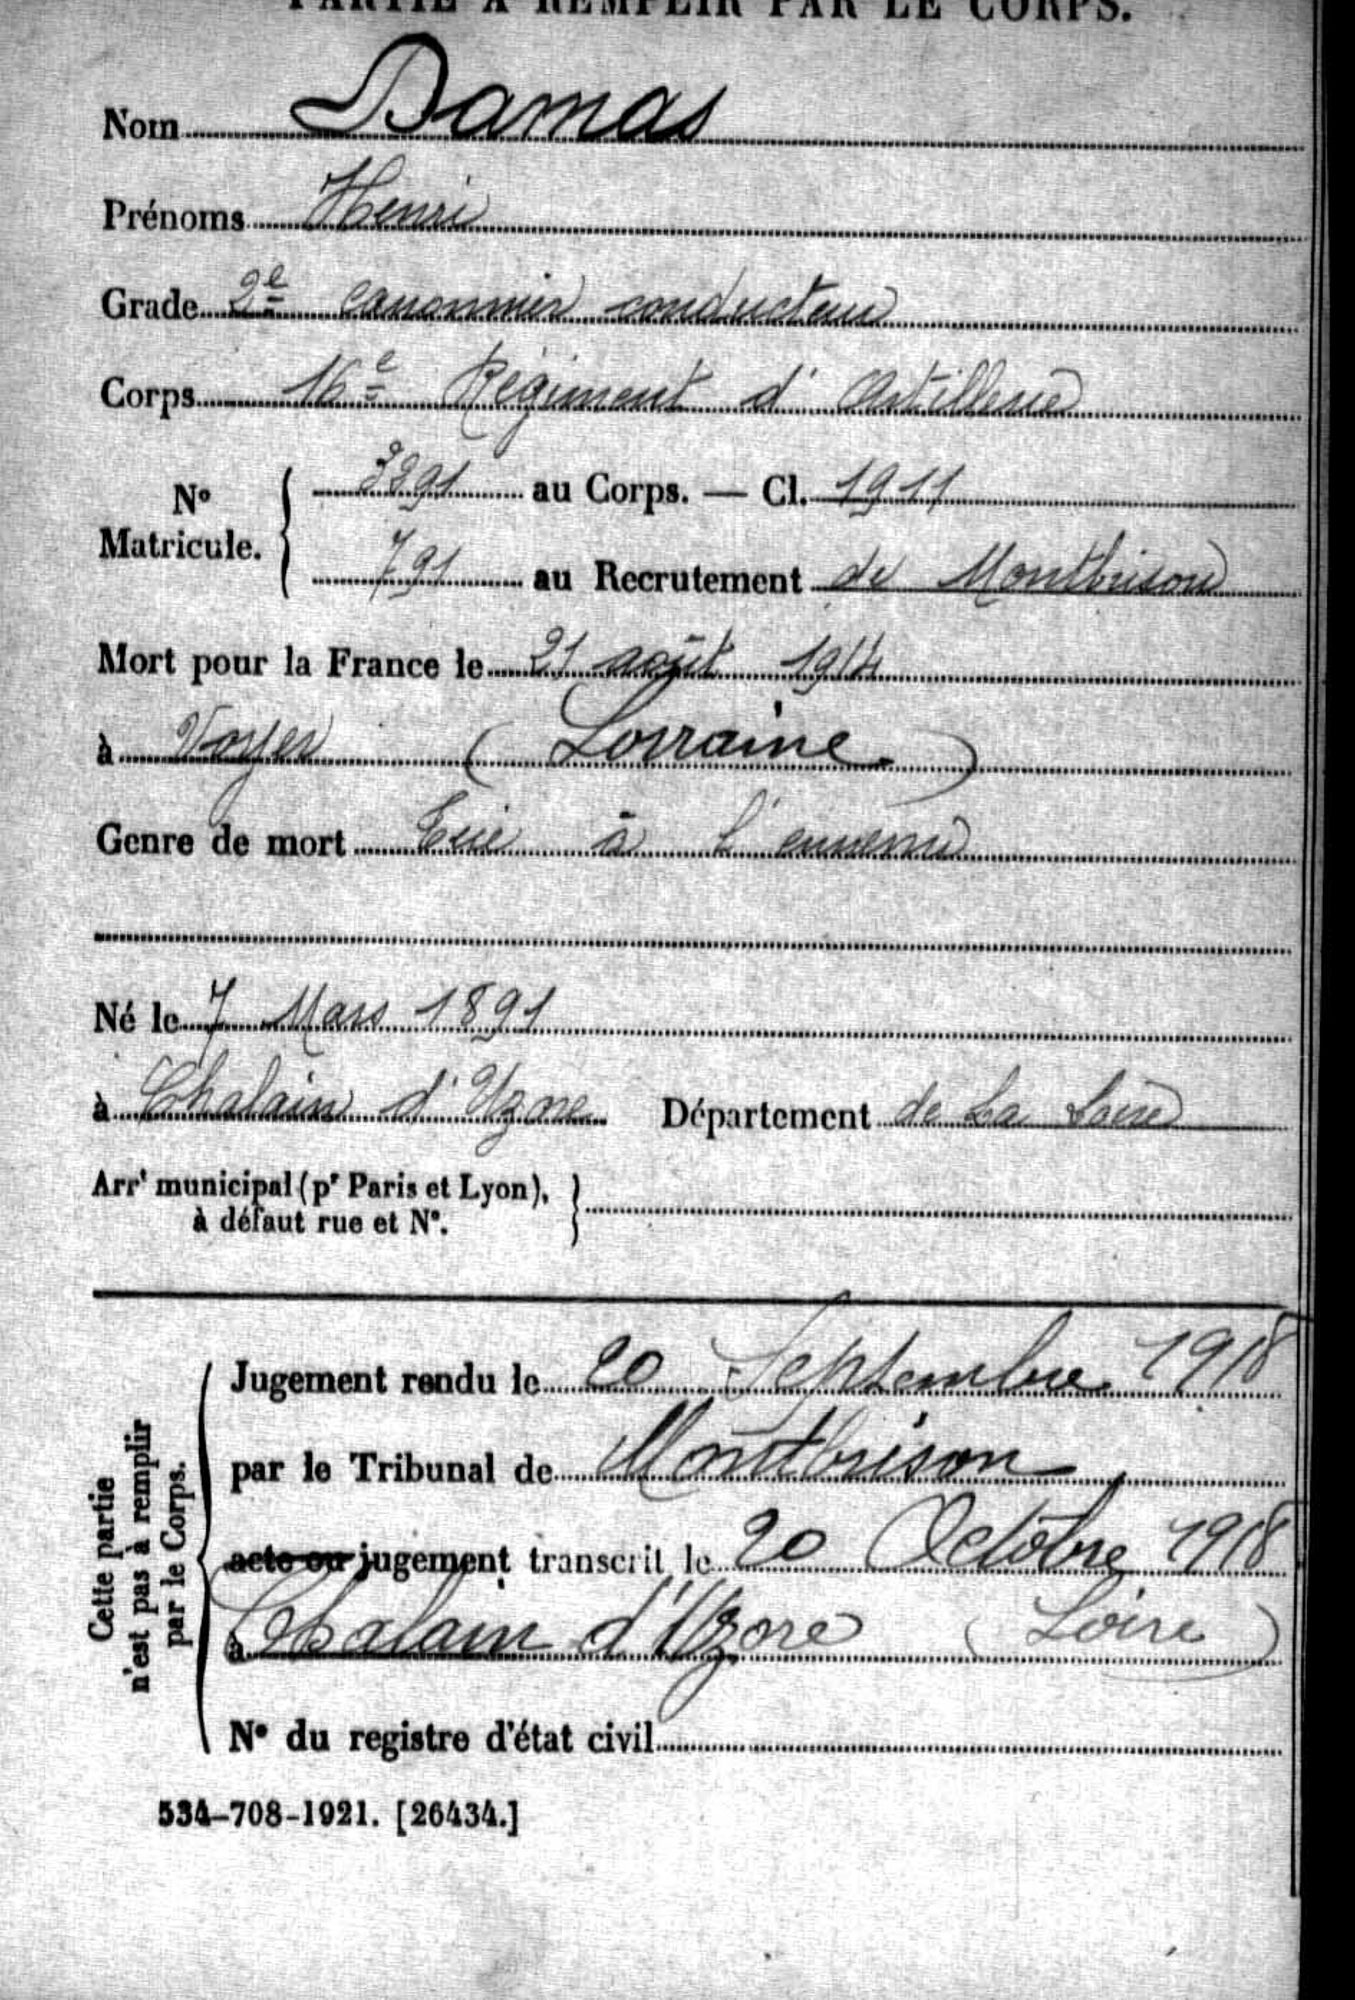 PARTIE À REMPLIR PAR LE CORPS.
Nom Damas
Prénoms Henri
Grade 2e canonnier conducteur
Corps 16e Régiment d'Artillerie
N° Matricule. { 3291 au Corps. — Cl. 1911
791 au Recrutement de Montbrison
Mort pour la France le 21 août 1914
à Voyer (Lorraine)
Genre de mort Tué à l'ennemi
Né le 7 Mars 1891
à Chalain d'Uzore Département de La Loire
Arrt municipal (pr Paris et Lyon), à défaut rue et N°. }
Cette partie n'est pas à remplir par le Corps.
Jugement rendu le 20 Septembre 1918
par le Tribunal de Montbrison
acte ou jugement transcrit le 20 Octobre 1918
à Chalain d'Uzore (Loire)
N° du registre d'état civil
534-708-1921. [26434.]